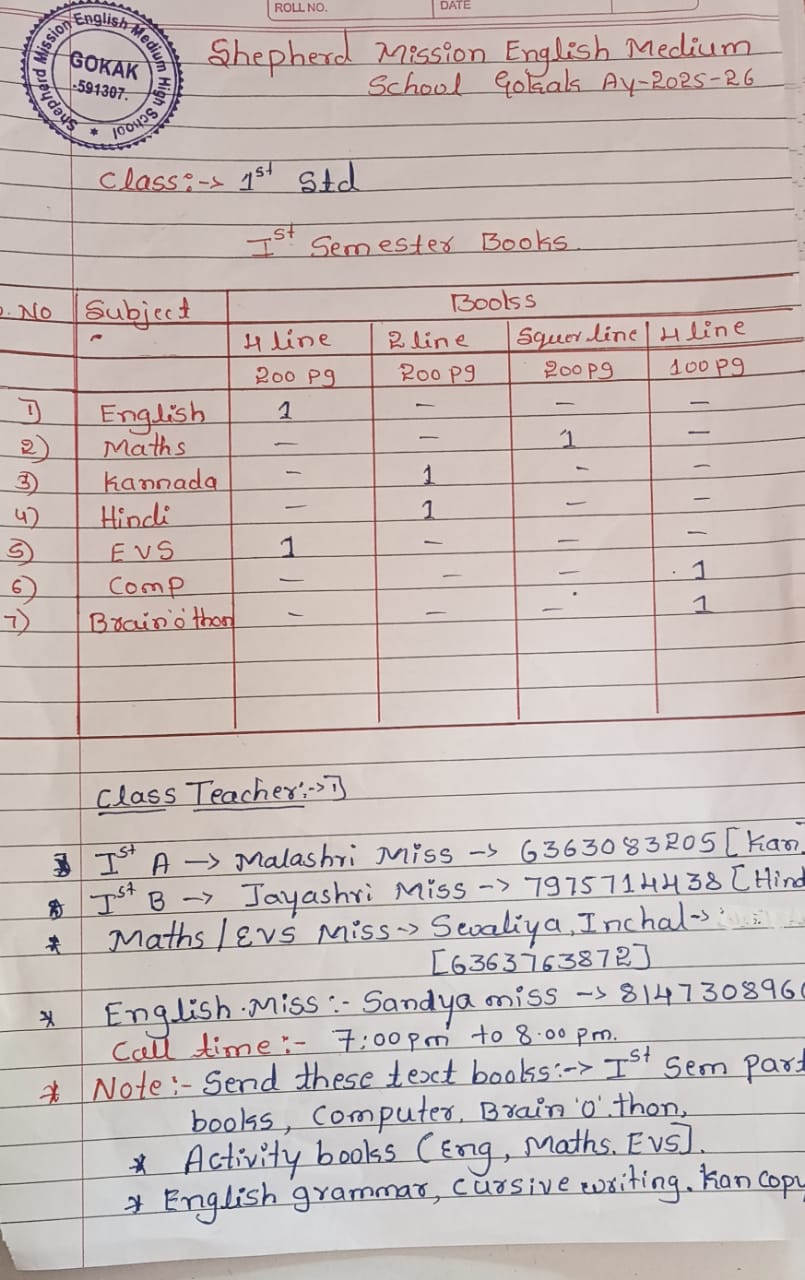 ROLL NO.
DATE
Shepherd Mission English Medium High School
GOKAK
-591307.
Shepherd Mission English Medium
School Gokak AY-2025-26
Class:-> 1st Std
Ist Semester Books
. No Subject Books
" 4 line 2 line Squer line 4 line
200 pg 200 pg 200 pg 100 pg
1) English 1 - - -
2) Maths - - 1 -
3) Kannada - 1 - -
4) Hindi - 1 - -
5) EVS 1 - - -
6) Comp - - - 1
7) Brain'o'thon - - - 1
Class Teacher:->
* Ist A -> Malashri Miss -> 6363083205 [Kan
* Ist B -> Jayashri Miss -> 7975714438 [Hind
* Maths / EVS Miss -> Sevaliya, Inchal ->
[6363763872]
* English Miss :- Sandya miss -> 814730896
Call time :- 7:00 pm to 8.00 pm.
* Note :- Send these text books :-> Ist Sem part
books, Computer, Brain 'O' thon,
* Activity books (Eng, Maths. EVS].
* English grammar, cursive writing. Kan copy